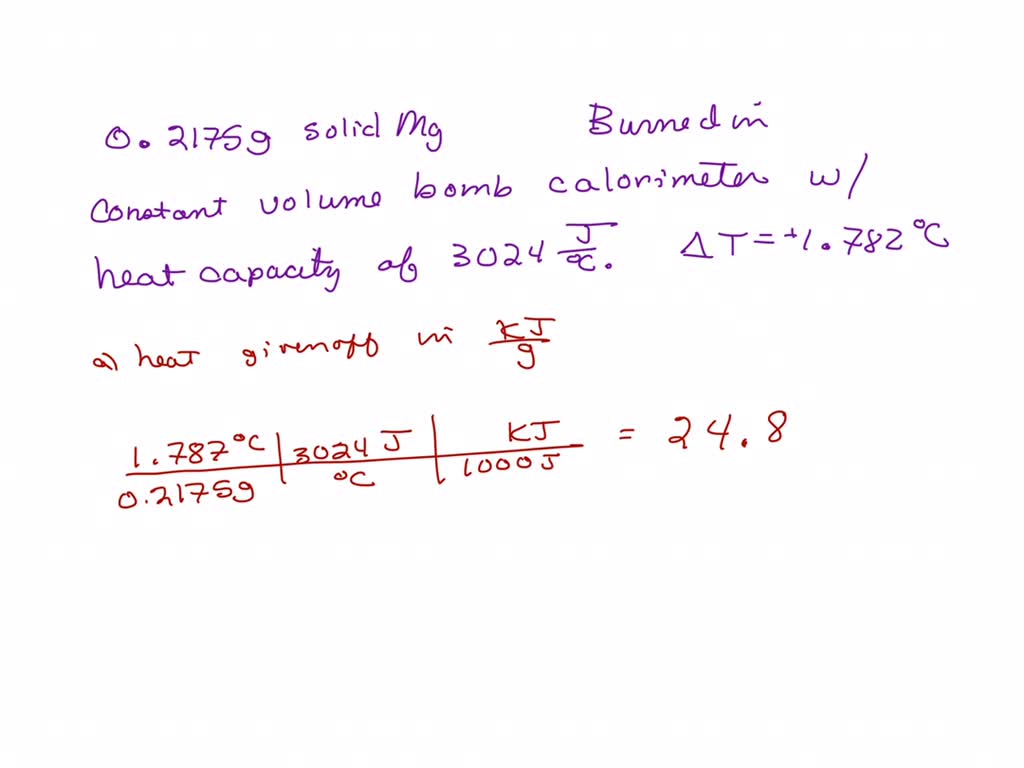 0.2175g solid Mg Burned in
constant volume bomb calorimeter w/
heat capacity of 3024 J/°C. ΔT = +1.782 °C
a) heat given off in KJ/g
1.787 °C | 3024 J | KJ = 24.8
0.2175g | °C | 1000 J